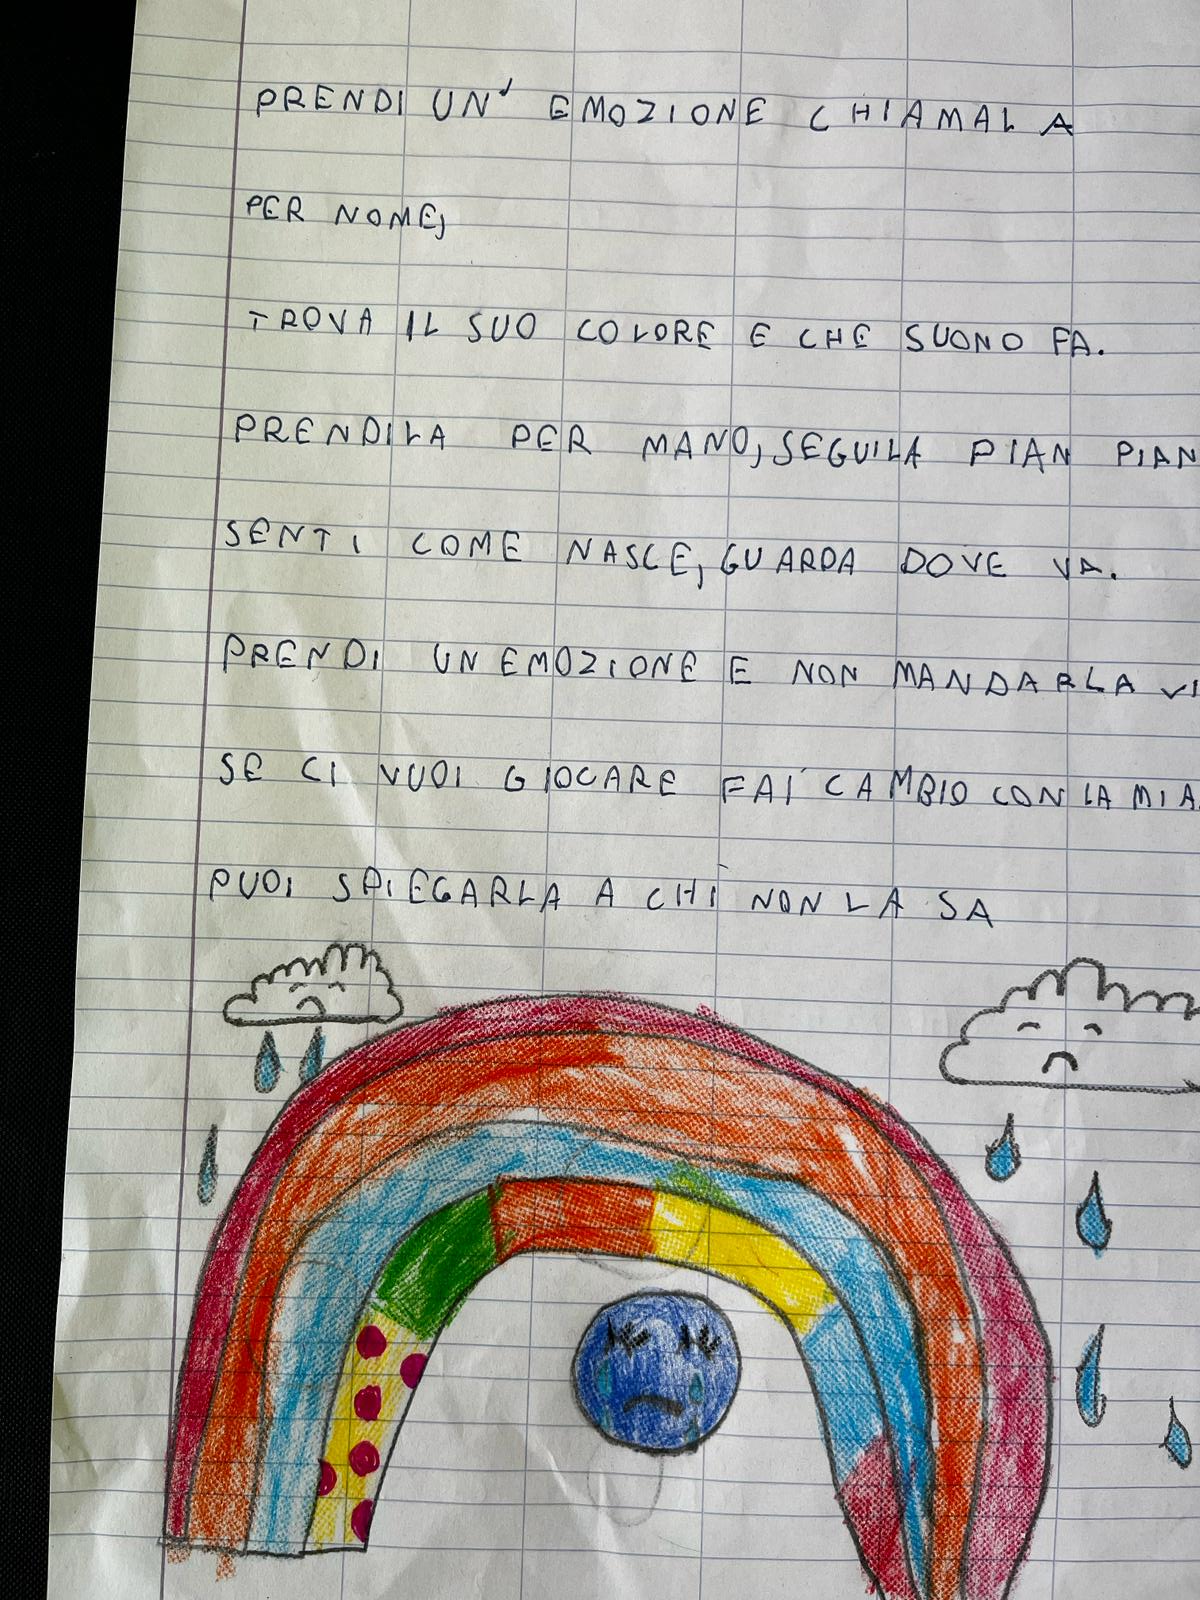 PRENDI UN' EMOZIONE CHIAMALA
PER NOME,
TROVA IL SUO COLORE E CHE SUONO FA.
PRENDILA PER MANO, SEGUILA PIAN PIAN
SENTI COME NASCE, GUARDA DOVE VA.
PRENDI UN EMOZIONE E NON MANDARLA VI
SE CI VUOI GIOCARE FAI CAMBIO CON LA MIA.
PUOI SPIEGARLA A CHI NON LA SA